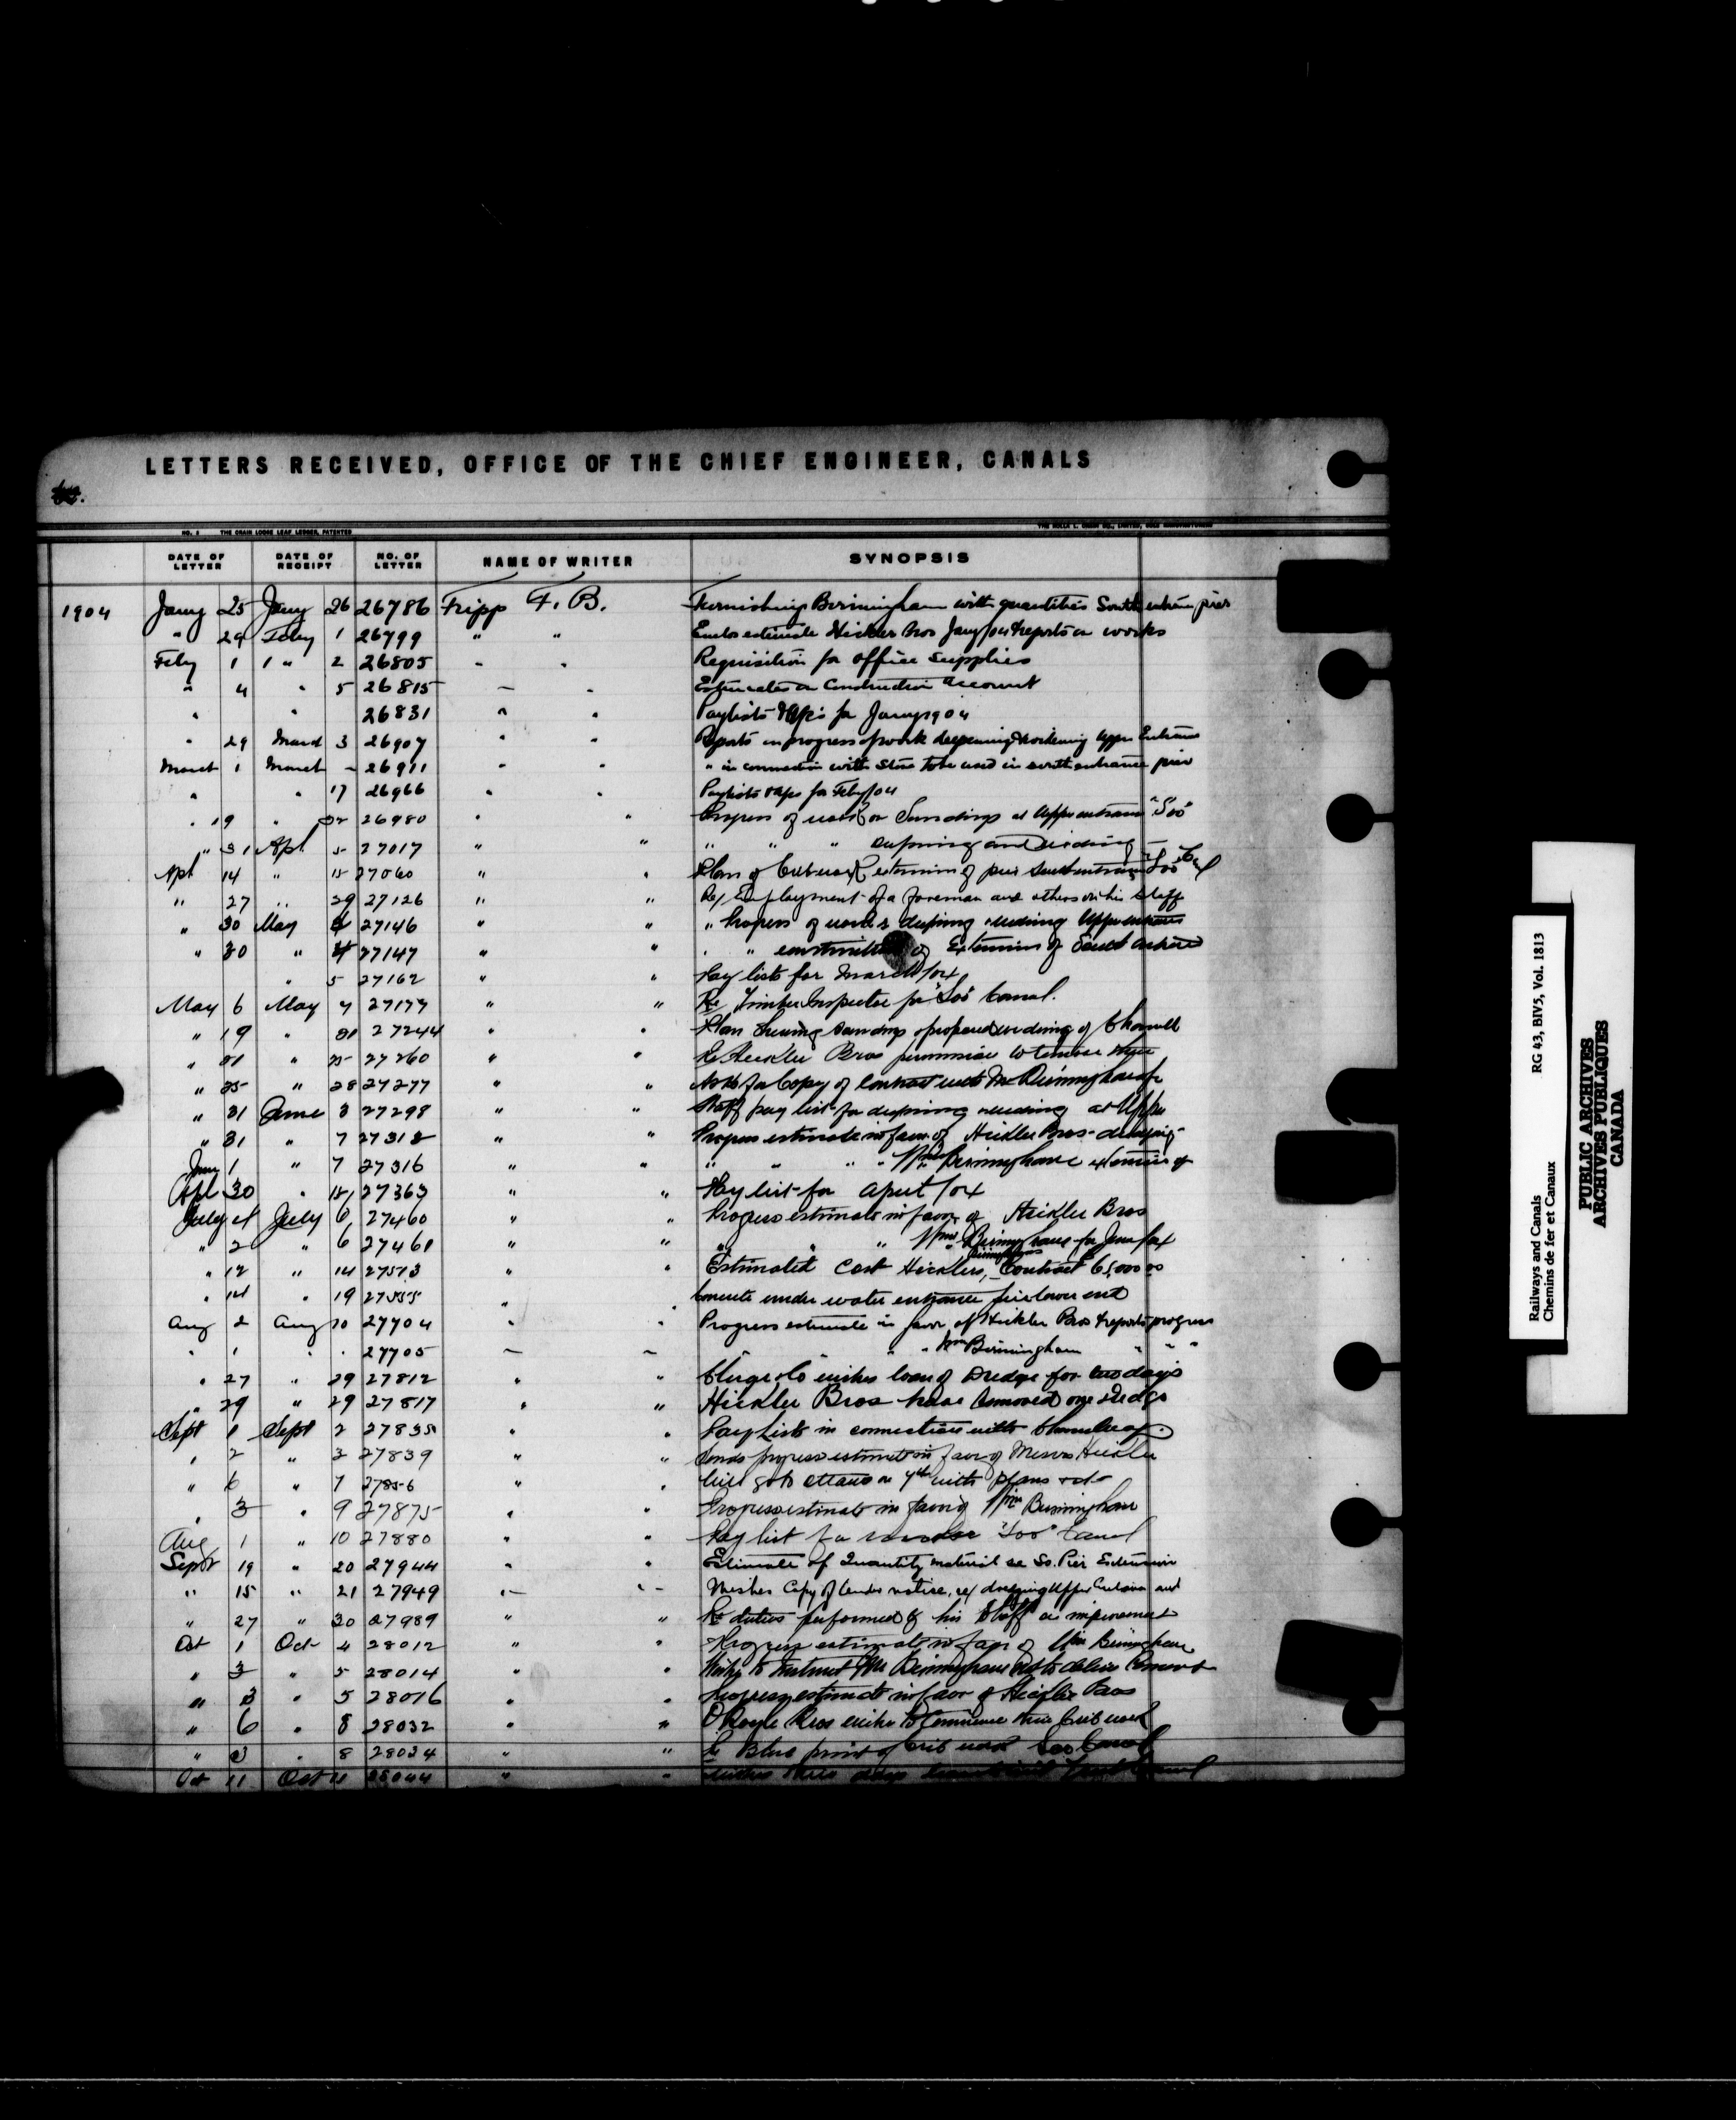 LETTERS RECEIVED, OFFICE OF THE CHIEF ENGINEER, CANALS
NO. 2 THE CRAIN LOOSE LEAF LEDGER, PATENTED
DATE OF LETTER DATE OF RECEIPT NO. OF LETTER NAME OF WRITER SYNOPSIS
1904 Jany 25 Jany 26 26786 Fripp F. B. Furnishing Birmingham with quantities South entrance pier
" 29 Feby 1 26799 " " Enclos estimate Hickler Bros Jany/04 & reports on works
Feby 1 " 2 26805 " " Requisition for office supplies
" 4 " 5 26815 " " Estimates on Construction account
" " 26831 " " Paylists & a/cs for Jany 1904
" 29 March 3 26907 " " Reports on progress of work deepening & widening upper Entrance
March 1 March " 26911 " " " in connection with stone to be used in south entrance pier
" " 17 26966 " " Paylists & a/cs for Feby/04
" 19 " 22 26980 " " Progress of work on Soundings at Upper entrance "Soo"
" 31 Apl 5 27017 " " " " " deepening and widening
Apl 14 " 15 27060 " " Plan of Cribwork extension of pier South entrance Soo Canal
" 27 " 29 27126 " " Re/ Employment of a foreman and others on his staff
" 30 May 4 27146 " " " Progress of works deepening widening Upper entrance
" 30 " 4 27147 " " " " construction of Extension of South entrance
" 5 27162 " " Pay lists for March/04
May 6 May 7 27177 " " Re Timber Inspector for "Soo" Canal.
" 19 " 21 27244 " " Plan showing soundings proposed widening of Channel
" 21 " 25 27260 " " Re Hickler Bros permission to
" 25 " 28 27277 " " Asks for Copy of Contract with Mr Birmingham
" 31 June 3 27298 " " Staff pay list for deepening widening at Upper
" 31 " 7 27312 " " Progress estimate in favor of Hickler Bros
June 1 " 7 27316 " " " " " " Wm Birmingham extension of
Apl 30 " 15 27363 " " Pay list for April/04
July 2 July 6 27460 " " Progress estimate in favor of Hickler Bros
" 2 " 6 27461 " " " " " Wm Birmingham for June/04
" 12 " 14 27513 " " Estimated Cost Hicklers, Birmingham Contract 65,000.00
" 14 " 19 27555 " " Concrete under water entrance pier lower end
Aug 2 Aug 10 27704 " " Progress estimate in favor of Hickler Bros & reports progress
" 1 " " 27705 " " " " Wm Birmingham " " "
" 27 " 29 27812 " " wishes loan of Dredge for two days
" 29 " 29 27817 " " Hickler Bros have removed one dredge
Sept 1 Sept 2 27835 " " Pay lists in connection with
" 2 " 3 27839 " " Sends progress estimate in favor of Messrs Hickler
" 6 " 7 27856 " " Will go to Ottawa on 7th with plans etc
" 3 " 9 27875 " " Progress estimate in favor of Wm Birmingham
Aug 1 " 10 27880 " " Pay list for "Soo" Canal
Sept 19 " 20 27944 " " Estimate of Quantity material re So. Pier Extension
" 15 " 21 27949 " " Wishes Copy of tender notice, re/ dredging Upper Entrance and
" 27 " 30 27989 " " Re duties performed by his Staff on improvement
Oct 1 Oct 4 28012 " " Progress estimate in favor of Wm Birmingham
" 3 " 5 28014 " " Wishes to instruct Mr Birmingham not to deliver Cement
" 3 " 5 28016 " " Progress estimate in favor of Hickler Bros
" 6 " 8 28032 " " O'Boyle Bros wishes to Commence their Crib work
" " 8 28034 " " Re Blue print of Crib work Soo Canal
Oct 11 Oct 28044 " "
Railways and Canals RG 43, BIV5, Vol. 1813
Chemins de fer et Canaux
PUBLIC ARCHIVES
ARCHIVES PUBLIQUES
CANADA